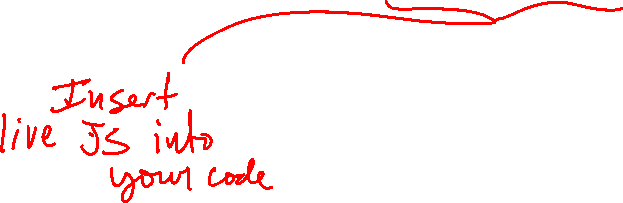 Insert
live JS into
your code